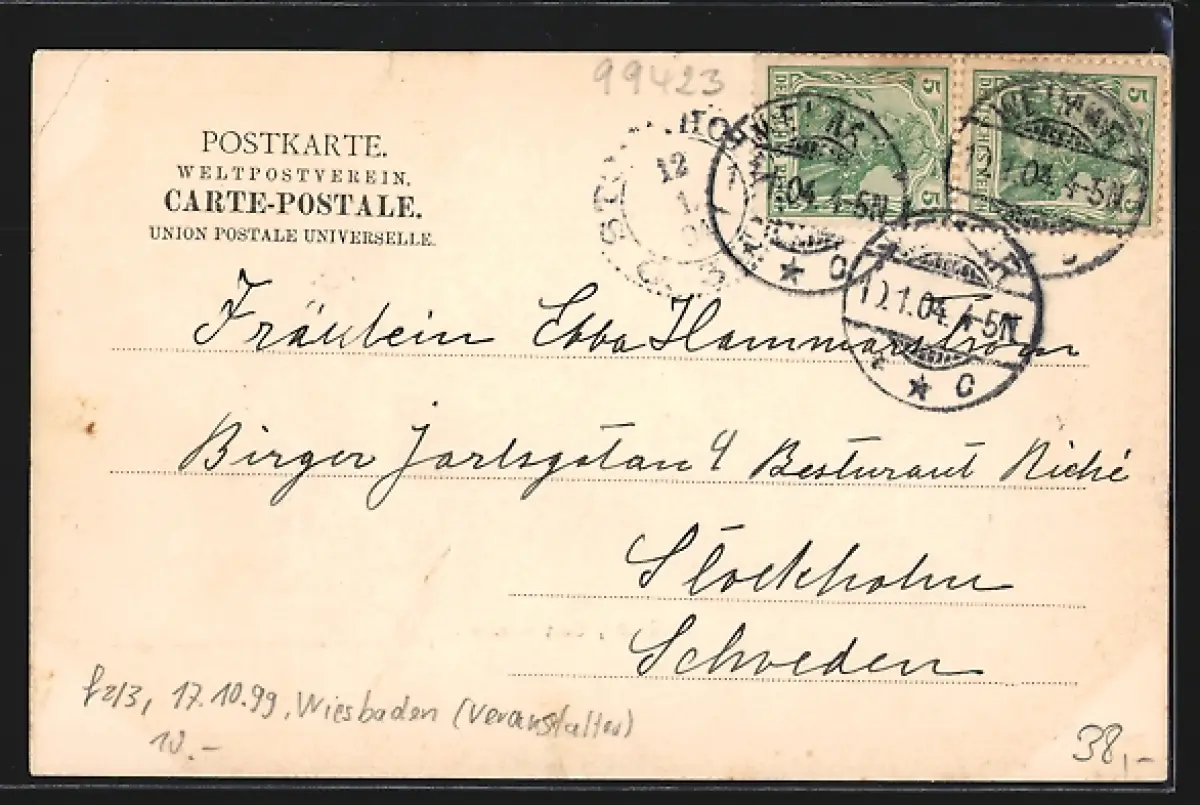 99423
POSTKARTE.
WELTPOSTVEREIN.
CARTE-POSTALE.
UNION POSTALE UNIVERSELLE.
5 5
5 5
12
1
WEIMAR
1.04. 4-5N
* C
WEIMAR
1.04. 4-5N
1.04. 4-5N
* C
Fräulein Ebba Hammarström
Birger Jarlsgatan 4 Resturant Riché
Stockholm
Schweden
f2/3, 17.10.99, Wiesbaden (Veranstalter)
10.-
38,-